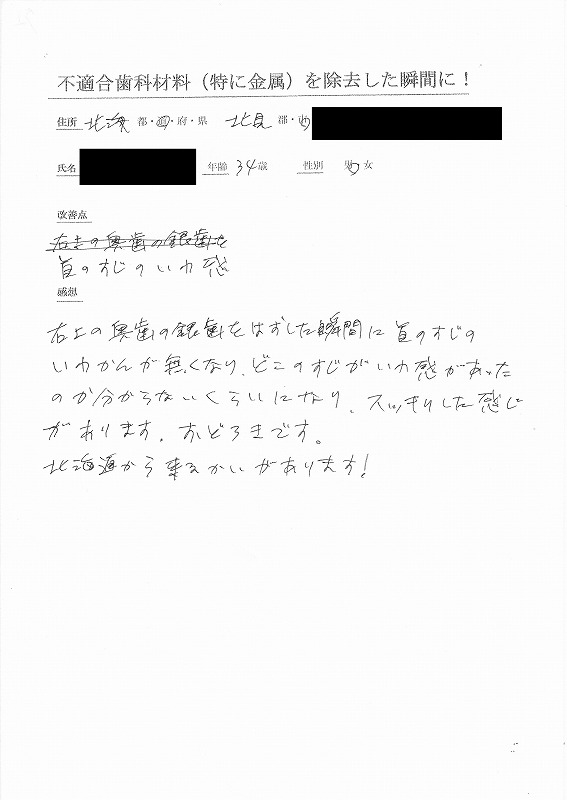 不適合歯科材料（特に金属）を除去した瞬間に！
住所 北海 都・道・府・県 北見 郡・市
氏名 年齢 34歳 性別 男 女
改善点
右上の奥歯の銀歯を
首のすじのいわ感
感想
右上の奥歯の銀歯をはずした瞬間に首のすじの
いわかんが無くなり、どこのすじがいわ感があった
のか分からないくらいになり、スッキリした感じ
があります。おどろきです。
北海道から来るかいがあります！